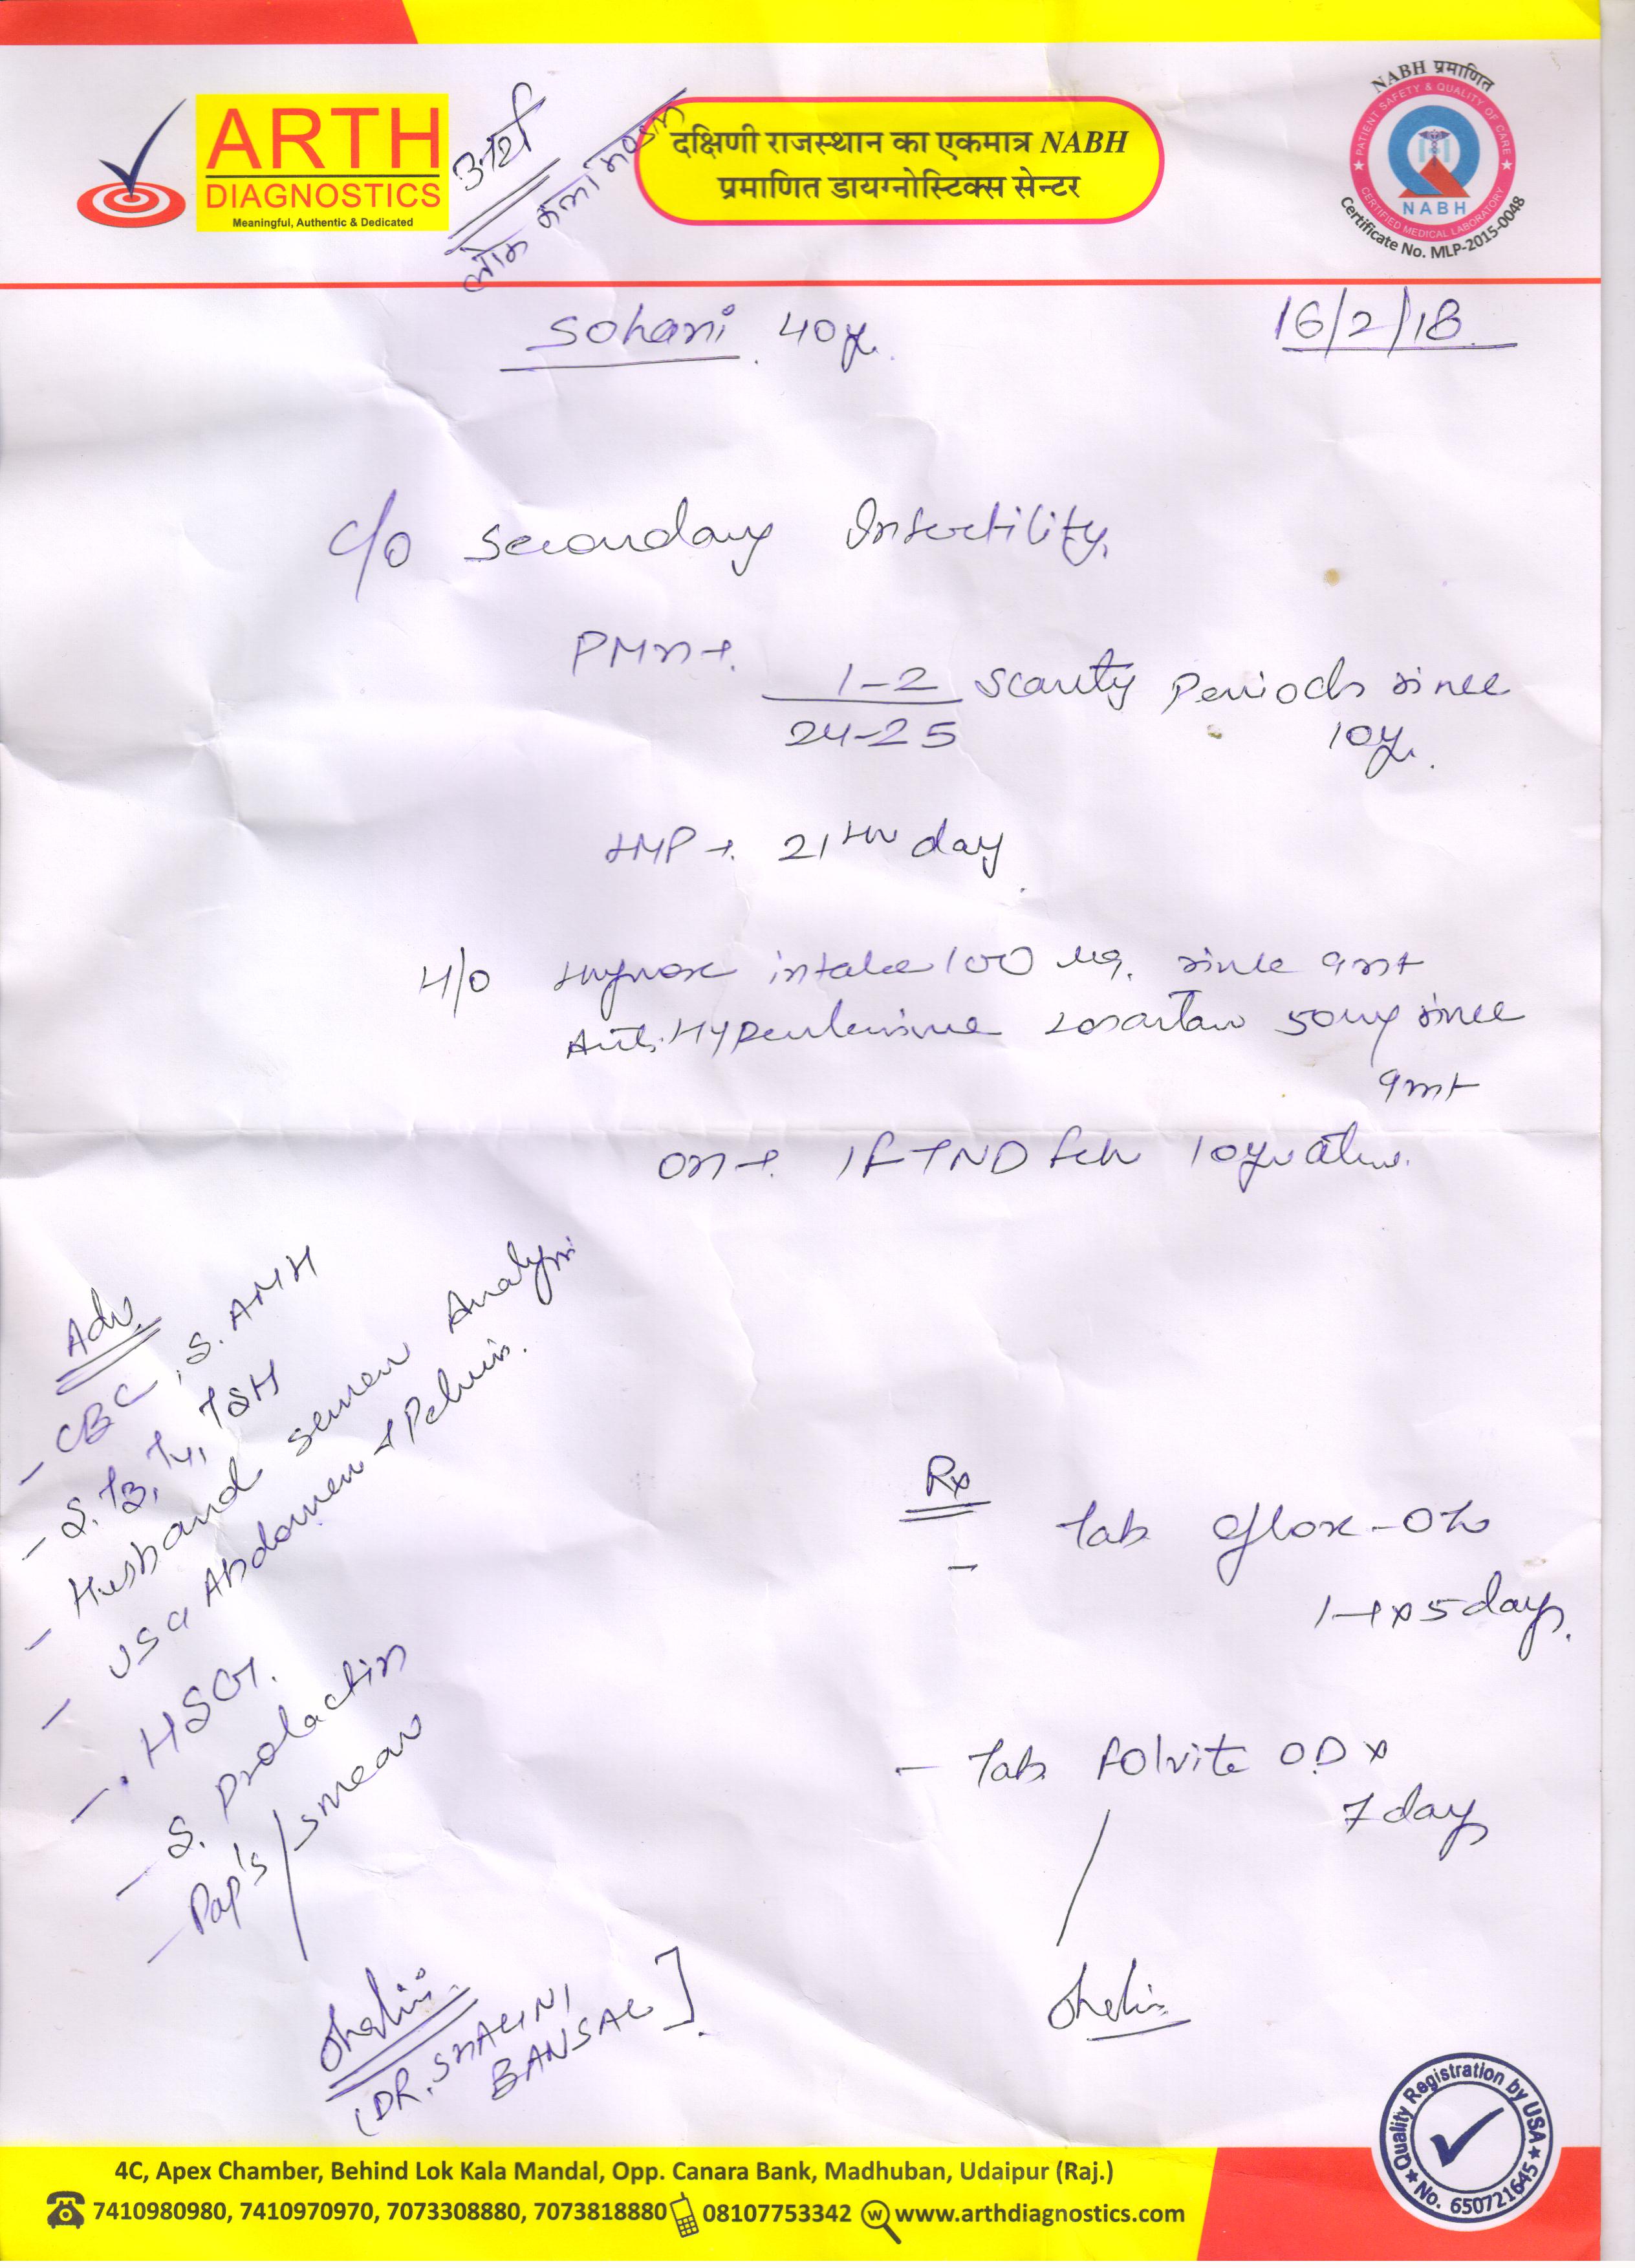 ARTH
DIAGNOSTICS
Meaningful, Authentic & Dedicated
अर्थ
लोक कला मण्डल
दक्षिणी राजस्थान का एकमात्र NABH
प्रमाणित डायग्नोस्टिक्स सेन्टर
NABH प्रमाणित
PATIENT SAFETY & QUALITY OF CARE
NABH
CERTIFIED MEDICAL LABORATORY
Certificate No. MLP-2015-0048
Sohani 40y.
16/2/18
c/o Secondary Infertility.
PMH →
1-2
24-25
Scanty Periods since
10y.
LMP → 21st day
H/o Thyrox intake 100 µg. since 9mt
Anti.Hypertensive Losartan 50mg since
9mt
OH → 1 FTND
10y
Adv.
- CBC, S. AMH
- S. T3, T4, TSH
- Husband semen Analysis
- USG Abdomen & Pelvis.
- HSG.
- S. Prolactin
- Pap's smear
Shalini
(DR. SHALINI
BANSAL]
Rx
- Tab Oflox-OZ
1-1 x 5 days.
- Tab. Folvite OD x
7 days
Shalini
Quality Registration by USA
No. 650721645
4C, Apex Chamber, Behind Lok Kala Mandal, Opp. Canara Bank, Madhuban, Udaipur (Raj.)
7410980980, 7410970970, 7073308880, 7073818880 08107753342 www.arthdiagnostics.com